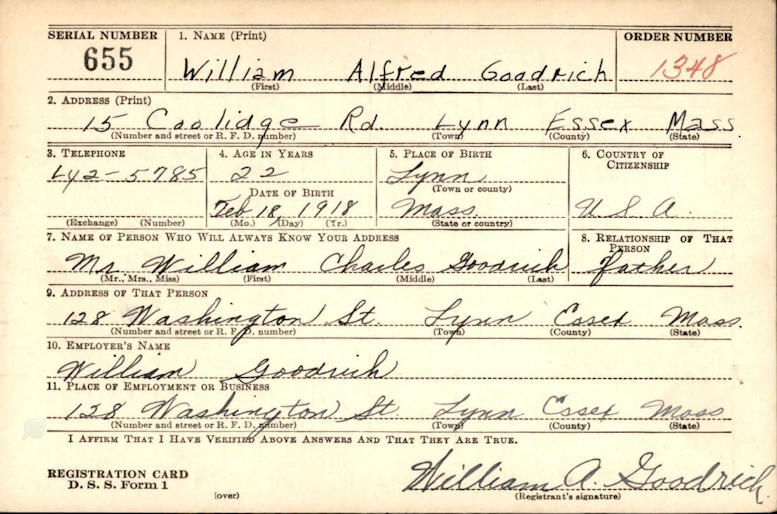 SERIAL NUMBER 1. NAME (Print) ORDER NUMBER
655 William Alfred Goodrich 1348
(First) (Middle) (Last)
2. ADDRESS (Print)
15 Coolidge Rd. Lynn Essex Mass.
(Number and street or R. F. D. number) (Town) (County) (State)
3. TELEPHONE 4. AGE IN YEARS 5. PLACE OF BIRTH 6. COUNTRY OF CITIZENSHIP
Ly2-5785 22 Lynn
(Town or county)
DATE OF BIRTH
Feb 18, 1918 Mass. U.S.A.
(Exchange) (Number) (Mo.) (Day) (Yr.) (State or country)
7. NAME OF PERSON WHO WILL ALWAYS KNOW YOUR ADDRESS 8. RELATIONSHIP OF THAT PERSON
Mr. William Charles Goodrich father
(Mr., Mrs., Miss) (First) (Middle) (Last)
9. ADDRESS OF THAT PERSON
128 Washington St. Lynn Essex Mass.
(Number and street or R. F. D. number) (Town) (County) (State)
10. EMPLOYER'S NAME
William Goodrich
11. PLACE OF EMPLOYMENT OR BUSINESS
128 Washington St Lynn Essex Mass
(Number and street or R. F. D. number) (Town) (County) (State)
I AFFIRM THAT I HAVE VERIFIED ABOVE ANSWERS AND THAT THEY ARE TRUE.
REGISTRATION CARD William A. Goodrich.
D. S. S. Form 1 (over) (Registrant's signature)